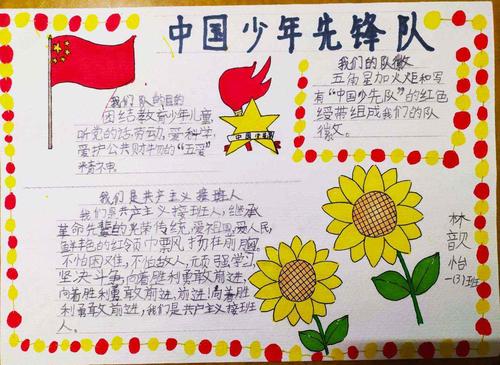 中国少年先锋队
我们队的目的
团结教育少年儿童
听党的话劳动,爱科学,
爱护公共财物的“五爱”
中国少先队
我们的队徽
五角星加火炬和写
有“中国少先队”的红色
绶带组成我们的队
徽。
我们是共产主义接班人
我们是共产主义接班人,继承
革命先辈的光荣传统,爱祖国,爱人民,
鲜艳的红领巾飘扬在前胸
不怕困难,不怕敌人,顽强学习,
坚决斗争,向着胜利勇敢前进,
向着胜利勇敢前进,前进!向着胜
利勇敢前进,我们是共产主义接班
人。
林
歆
怡
一(3)班